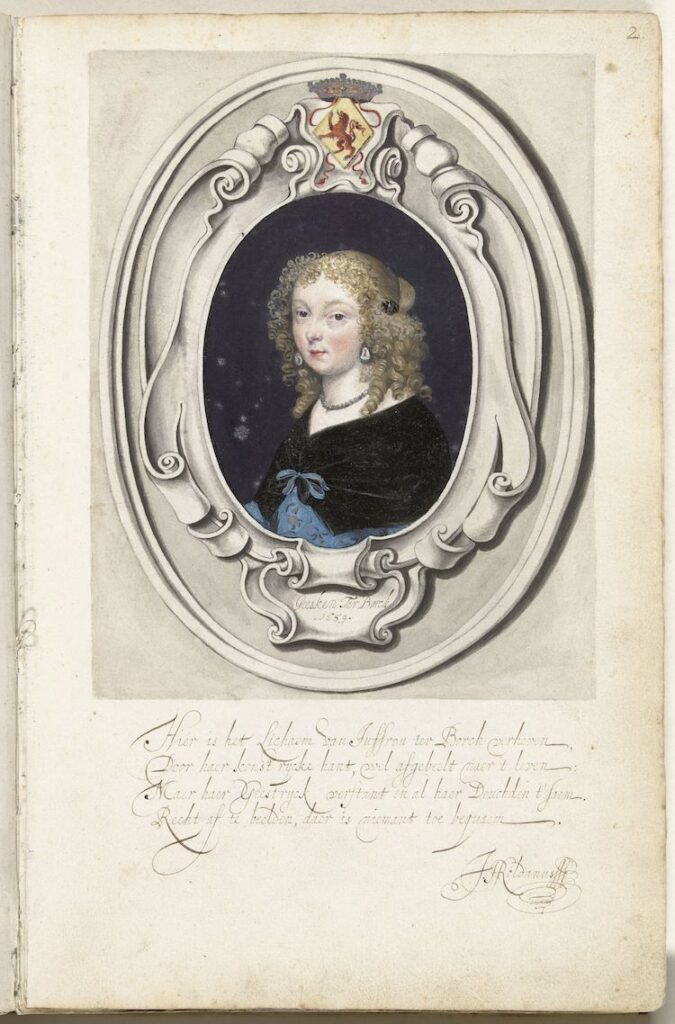 2
Gesken Ter Borch
1659.
Hier is het Lichaem van Juffrou ter Borch verheven,
Door haer konst rycke hant, wel afgebeelt naer 't leven:
Maer haer Geestryck verstant en al haer Deuchden t'saem.
Recht af te beelden, daer is niemant toe bequaem.
J Roldanus